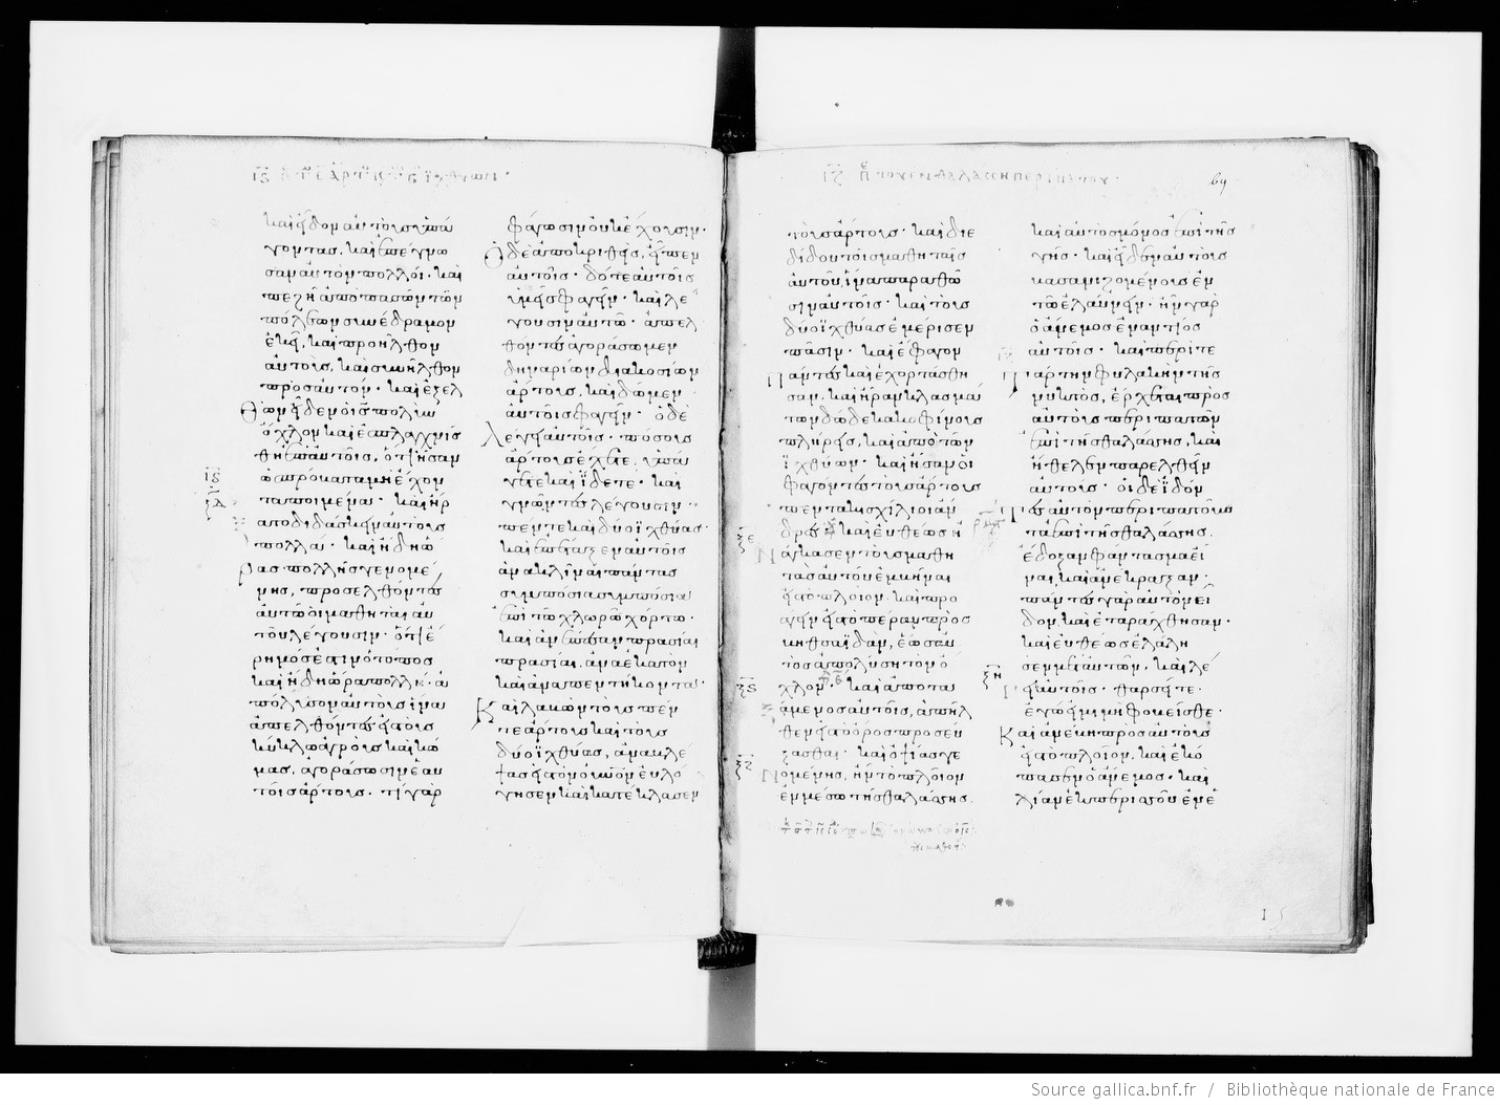 καὶ εἶδον αὐτοὺς ὑπά
γοντας, καὶ ἐπέγνω
σαν αὐτὸν πολλοί· καὶ
πεζῇ ἀπὸ πασῶν τῶν
πόλεων συνέδραμον
ἐκεῖ, καὶ προῆλθον
αὐτοὺς, καὶ συνῆλθον
πρὸς αὐτόν· καὶ ἐξελ
θὼν εἶδεν ὁ ις πολὺν
ὄχλον καὶ ἐσπλαγχνίσ
θη ἐπ' αὐτοῖς, ὅτι ἦσαν
ὡς πρόβατα μὴ ἔχον
τα ποιμένα· καὶ ἤρ
ξατο διδάσκειν αὐτοὺς
πολλά· καὶ ἤδη ὥ
ρας πολλῆς γενομέ
νης, προσελθόντες
αὐτῶ οἱ μαθηταὶ αὐ
τοῦ λέγουσιν· ὅτι ἔ
ρημός ἐστιν ὁ τόπος
καὶ ἤδη ὥρα πολλή· ἀ
πόλυσον αὐτοὺς ἵνα
ἀπελθόντες εἰς τοὺς
κύκλω ἀγροὺς καὶ κώ
μας, ἀγοράσωσιν ἑαυ
τοῖς ἄρτους· τί γὰρ
φάγωσιν οὐκ ἔχουσιν·
Ὁ δὲ ἀποκριθεὶς, εἶπεν
αὐτοῖς· δότε αὐτοῖς
ὑμεῖς φαγεῖν· καὶ λέ
γουσιν αὐτῶ· ἀπελ
θόντες ἀγοράσωμεν
δηναρίων διακοσίων
ἄρτους, καὶ δῶμεν
αὐτοῖς φαγεῖν· ὁ δὲ
λέγει αὐτοῖς· πόσους
ἄρτους ἔχετε. ὑπά
γετε καὶ ἴδετε· καὶ
γνῶντες λέγουσιν·
πέντε καὶ δύο ἰχθύας·
καὶ ἐπέταξεν αὐτοῖς
ἀνακλῖναι πάντας
συμπόσια συμπόσια
ἐπὶ τῶ χλωρῶ χόρτω·
καὶ ἀνέπεσαν πρασιαὶ
πρασιαὶ, ἀνὰ ἑκατὸν
καὶ ἀνὰ πεντήκοντα·
Καὶ λαβὼν τοὺς πέν
τε ἄρτους καὶ τοὺς
δύο ἰχθύας, ἀναβλέ
ψας εἰς τὸν οὐνὸν εὐλό
γησεν καὶ κατέκλασεν
ιζ π τοῦ ἐν θαλάσση περιπάτου·
69
τοὺς ἄρτους· καὶ ἐδί
δου τοῖς μαθηταῖς
αὐτοῦ, ἵνα παραθῶ
σιν αὐτοῖς· καὶ τοὺς
δύο ἰχθύας ἐμέρισεν
πᾶσιν· καὶ ἔφαγον
πάντες καὶ ἐχορτάσθη
σαν. καὶ ἦραν κλασμά
των δώδεκα κοφίνους
πλήρεις, καὶ ἀπὸ τῶν
ἰχθύων· καὶ ἦσαν οἱ
φαγόντες τοὺς ἄρτους
πεντακισχίλιοι ἄν
δρες καὶ εὐθέως ἠ
νάγκασεν τοὺς μαθη
τὰς αὐτοῦ ἐμβῆναι
εἰς τὸ πλοῖον. καὶ προ
άγειν εἰς τὸ πέραν πρὸς
βηθσαϊδὰν, ἕως αὐ
τὸς ἀπολύση τὸν ὄ
χλον· καὶ ἀποτα
ξάμενος αὐτοῖς, ἀπῆλ
θεν εἰς τὸ ὄρος προσεύ
ξασθαι· καὶ ὀψίας γε
νομένης, ἦν τὸ πλοῖον
ἐν μέσω τῆς θαλάσσης.
καὶ αὐτὸς μόνος ἐπὶ τῆς
γῆς· καὶ εἶδεν αὐτοὺς
βασανιζομένους ἐν
τῶ ἐλαύνειν· ἦν γὰρ
ὁ ἄνεμος ἐναντίος
αὐτοῖς· καὶ περὶ τε
τάρτην φυλακὴν τῆς
νυκτὸς, ἔρχεται πρὸς
αὐτοὺς περιπατῶν
ἐπὶ τῆς θαλάσσης, καὶ
ἤθελεν παρελθεῖν
αὐτούς· οἱ δὲ ἰδόν
τες αὐτὸν περιπατοῦν
τα ἐπὶ τῆς θαλάσσης.
ἔδοξαν φάντασμα εἶ
ναι, καὶ ἀνέκραξαν·
πάντες γὰρ αὐτὸν εἶ
δον, καὶ ἐταράχθησαν·
καὶ εὐθέως ἐλάλη
σεν μετ' αὐτῶν, καὶ λέ
γει αὐτοῖς· θαρσεῖτε·
ἐγώ εἰμι μὴ φοβεῖσθε·
Καὶ ἀνέβη πρὸς αὐτοὺς
εἰς τὸ πλοῖον, καὶ ἐκό
πασεν ὁ ἄνεμος· καὶ
λίαν ἐκ περισσοῦ ἐν ἑ
Source gallica.bnf.fr / Bibliothèque nationale de France